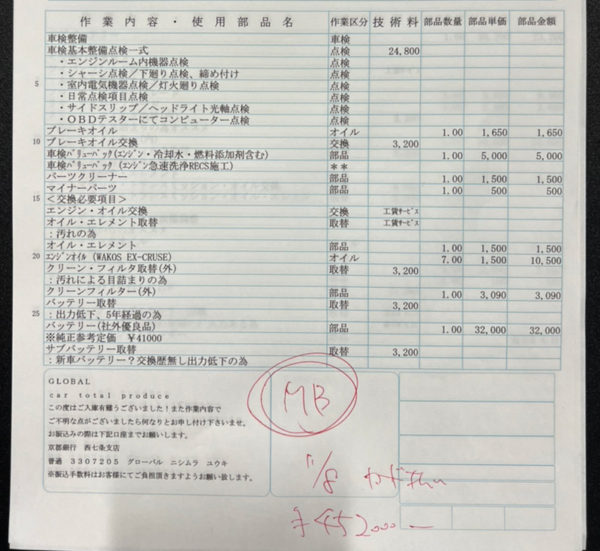 作業内容・使用部品名 作業区分 技術料 部品数量 部品単価 部品金額
車検整備 車検
車検基本整備点検一式 点検 24,800
・エンジンルーム内機器点検 点検
・シャーシ点検/下廻り点検、締め付け 点検
5 ・室内電気機器点検/灯火廻り点検 点検
・日常点検項目点検 点検
・サイドスリップ/ヘッドライト光軸点検 点検
・OBDテスターにてコンピューター点検 点検
ブレーキオイル オイル 1.00 1,650 1,650
10 ブレーキオイル交換 交換 3,200
車検バリューパック(エンジン・冷却水・燃料添加剤含む) 部品 1.00 5,000 5,000
車検バリューパック(エンジン急速洗浄RECS施工) **
パーツクリーナー 部品 1.00 1,500 1,500
マイナーパーツ 部品 1.00 500 500
15 <交換必要項目>
エンジン・オイル交換 交換 工賃サービス
オイル・エレメント取替 取替 工賃サービス
:汚れの為
オイル・エレメント 部品 1.00 1,500 1,500
20 エンジンオイル(WAKOS EX-CRUSE) オイル 7.00 1,500 10,500
クリーン・フィルタ取替(外) 取替 3,200
:汚れによる目詰まりの為
クリーンフィルター(外) 部品 1.00 3,090 3,090
バッテリー取替 取替 3,200
25 :出力低下、5年経過の為
バッテリー(社外優良品) 部品 1.00 32,000 32,000
※純正参考定価 ¥41000
サブバッテリー取替 取替 3,200
:新車バッテリー?交換歴無し出力低下の為
GLOBAL
car total produce
この度はご入庫有難うございました!また作業内容で
ご不明な点がございましたら何なりとお申し付け下さいませ。
お振込みの際は下記口座までお願いします。
京都銀行 西七条支店
普通 3307205 グローバル ニシムラ ユウキ
※振込手数料はお客様にてご負担頂きますようお願い致します。
MB
11/8
¥452000-